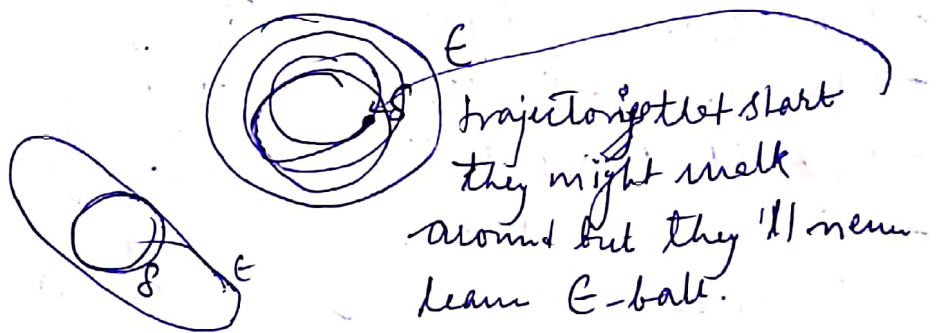 E
δ
trajectories that start
they might walk
around but they'll never
leave E-ball.
δ
E